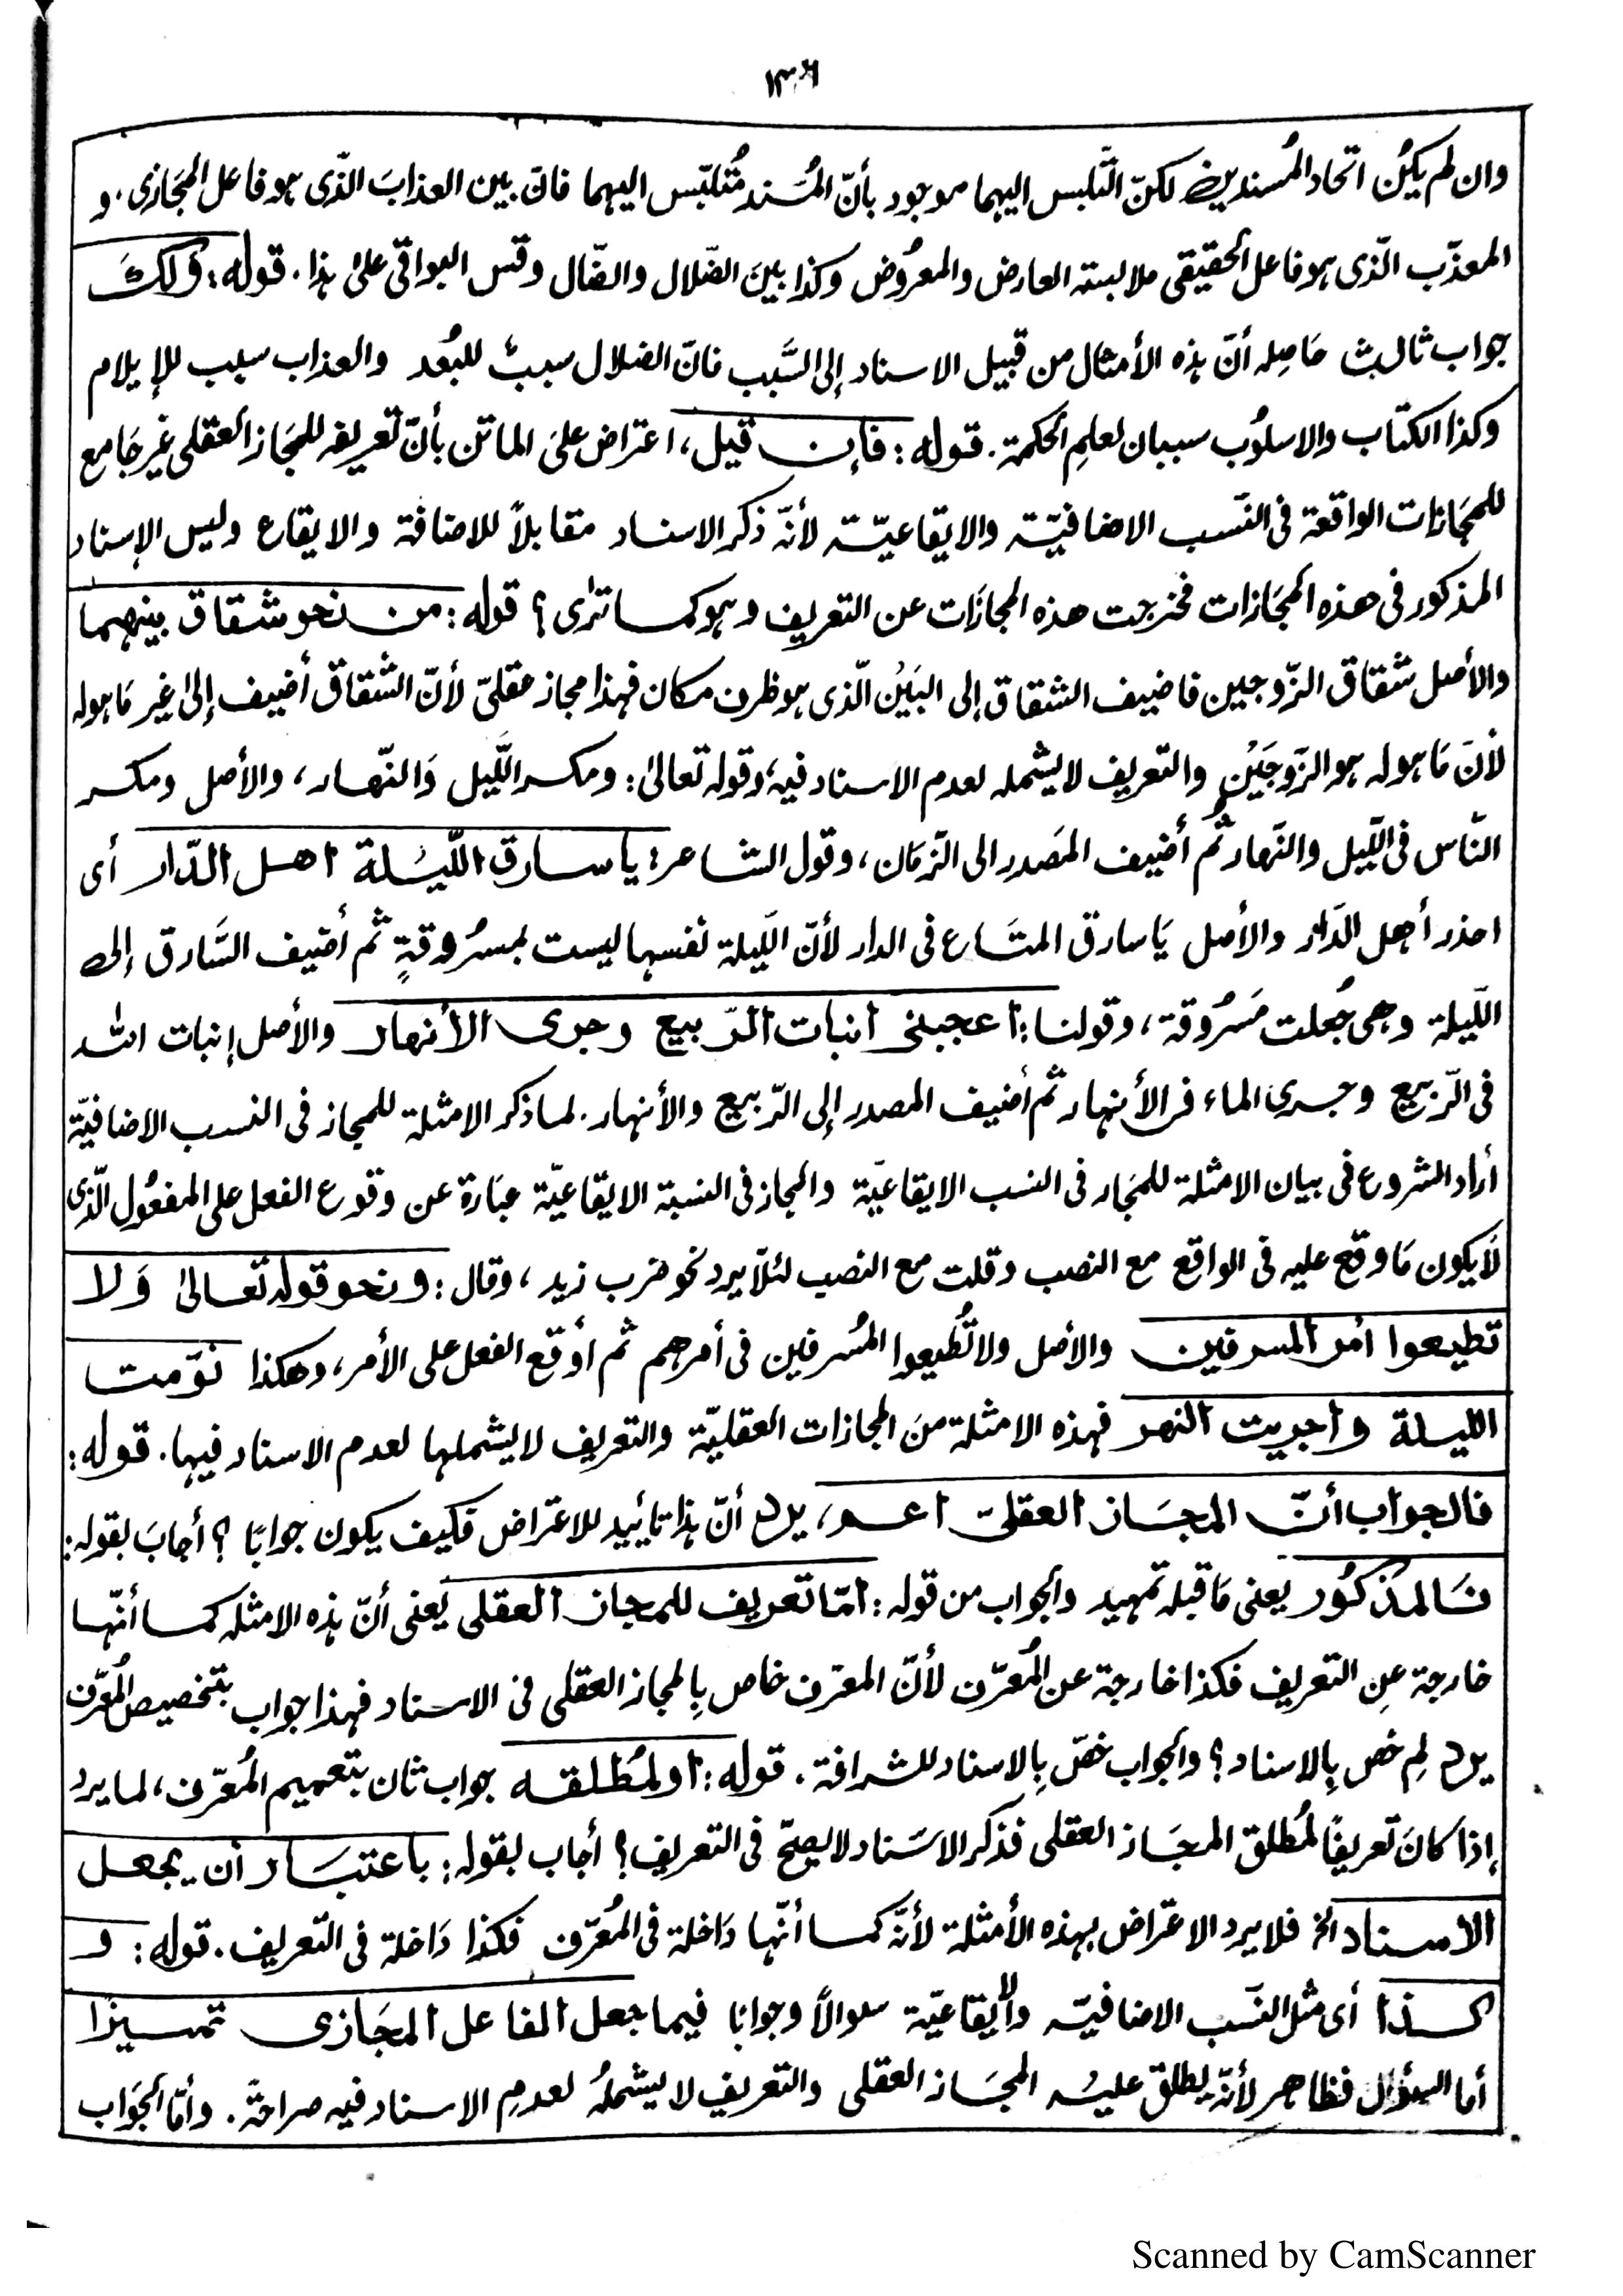 ١٣٦
وان لم يكُن اتّحاد المُسندين لكنّ التّلبس اليهما موجود بأنّ المُسند مُتلبّس اليهما فانّ بين العذابَ الذّى هو فاعل المجَازى، و
المعذّب الّذى هو فاعل الحقيقى ملابسته العارض والمعرُوض وكذا بينَ الضّلال والضّال وقس البواقى علىٰ هذا. قوله: ولكَ
جواب ثالث حَاصِله أنّ هذه الأمثال من قبيل الاسناد إلى السَّبب فانّ الضلال سببٌ للبُعد والعذاب سبب للإيلام
وكذا الكتاب والاسلوُب سببان لعلمِ الحكمة. قوله: فإن قيل، اعتراض علىَ الماتن بأنّ تعريفه للمجَاز العقلى غير جَامع
للمجَازات الواقعة فى النّسب الاضافيّة والايقاعيّة لأنّه ذكر الاسناد متقابلاً للاضافة والايقاع وليس الإسناد
المذكور فى هذه المجَازات فخرجت هذه المجازَات عن التعريف وهو كما ترٰى؟ قوله: من نحو شقاق بينهما
والأصل شقاق الزّوجين فاضيف الشقاق إلى البَينْ الّذى هو ظرف مكان فهذا مجاز عقلىّ لأنّ الشّقاق أضيف إلىٰ غير مَا هو له
لأنّ مَا هو له هو الزّوجَيْن والتعريف لا يشمله لعدم الاسناد فيه، وقوله تعالىٰ: ومكر اللّيل وَالنّهار، والأصل ومكر
النّاس فى اللّيل والنّهار ثم أضيف المصَدر الى الزّمَان، وقول الشاعر: يا سارق اللّيْلة اهل الدّار أى
احذر أهل الدّار والأصل يَا سارق المتَاع فى الدار لأنّ اللّيلة نفسها ليست بمسرُوقةٍ ثم أضيف السَّارق إلى
اللّيلة وهى جُعلت مَسرُوقة، وقولنا: اعجبنى انبات الرّبيع وجرى الأنهار والأصل إنبات الله
فى الرّبيع وجرى الماء فى الأنهار ثم أضيف المصدر إلى الرّبيع والأنهار. لما ذكر الامثلة للمجاز فى النسب الاضافيّة
أراد الشروع فى بيان الامثلة للمجَاز فى النسب الايقاعيّة والمجاز فى النسبة الايقاعيّة عبَارة عن وقوع الفعل على المفعُول الّذى
لَا يكون مَا وقع عليه فى الواقع مع النصب وقلت مع النصب لئلّا يرد نحو ضرب زيد، وقال: ونحو قوله تعالىٰ وَلا
تطيعوا امر المسرفين والأصل ولا تُطيعوا المُسرفين فى أمرهم ثم أوقع الفعل على الأمر، وهكذا نوّمت
الليلة واجريت النهر فهذه الامثلة منَ المجازات العقليّة والتعريف لا يشملها لعدم الاسناد فيها. قوله:
فالجواب أنّ المجَاز العقلىّ اعم، يرد أنّ هذا تأييد للاعتراض فكيف يكون جوابًا؟ أجابَ بقوله:
فَالمذكُور يعنى مَا قبله تمهيد والجواب من قوله: امّا تعريف للمجاز العقلى يَعنى أنّ هذه الامثله كما أنّها
خارجة عنِ التعريف فكذا خارجة عن المُعرّف لأنّ المعرّف خاص بِالمجاز العقلى فى الاسناد فهذا جواب بتخصيص المُعرّف
يرد لِم خص بِالاسناد؟ والجواب خصّ بِالاسناد للشرافة. قوله: او لمُطلقه جواب ثان بتعميم المُعرّف، لما يرد
إذا كانَ تعريفًا لمُطلق المجَاز العقلى فذكر الاسَناد لا يصحّ فى التعريف؟ أجاب بقوله: باعتبَار أن يجعل
الاسناد الخ فلا يرد الاعتراض بهذه الأمثلة لأنّه كما أنّها دَاخلة فى المُعرّف فكذا دَاخلة فى التّعريف. قوله: و
كذا أى مثل النّسب الاضافيّة والايقاعيّة سوالاً وجوابا فيما جعل الفاعل المجَازى تمييزا
أما السؤال فظاهر لأنّه يطلق عليْه المجَاز العقلى والتعريف لا يشملُهُ لعدمِ الاسناد فيه صراحةً. وأمّا الجَواب
Scanned by CamScanner